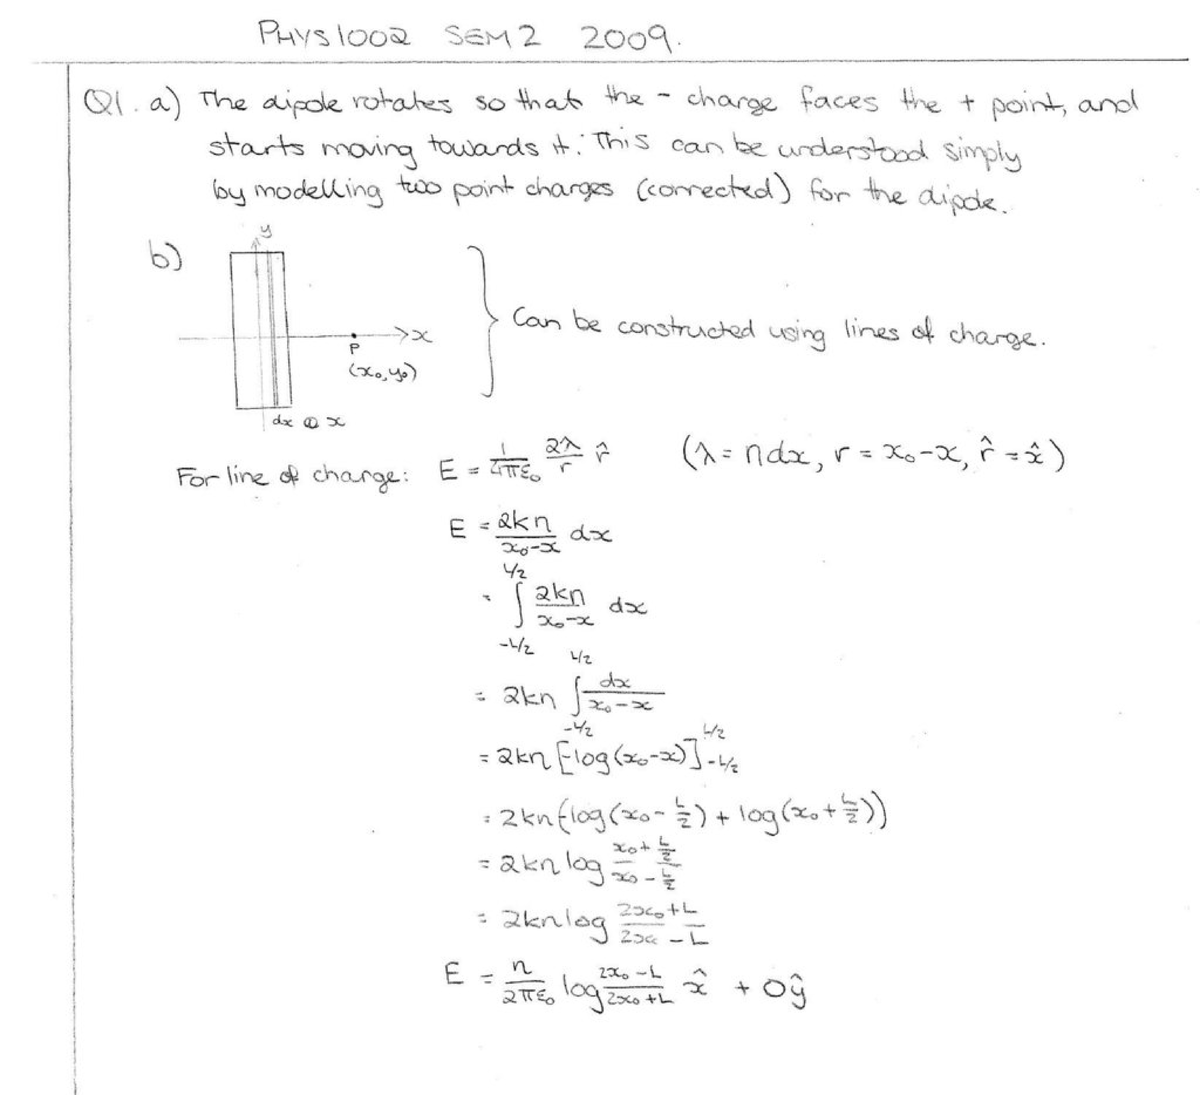 PHYS1002 SEM2 2009.
Q1. a) The dipole rotates so that the - charge faces the + point, and
starts moving towards it. This can be understood simply
by modelling two point charges (connected) for the dipole.
b)
y
x
P
(x₀, y₀)
dx @ x
} Can be constructed using lines of charge.
For line of charge: E = 1/4πε₀ 2λ/r r̂ (λ = ηdx, r = x₀-x, r̂ = x̂)
E = 2kη/x₀-x dx
= ∫_{-L/2}^{L/2} 2kη/x₀-x dx
= 2kη ∫_{-L/2}^{L/2} dx/x₀-x
= 2kη [-log(x₀-x)]_{-L/2}^{L/2}
= 2kη(-log(x₀-L/2) + log(x₀+L/2))
= 2kη log x₀+L/2 / x₀-L/2
= 2kη log 2x₀+L / 2x₀-L
E = η/2πε₀ log 2x₀-L / 2x₀+L x̂ + 0ŷ